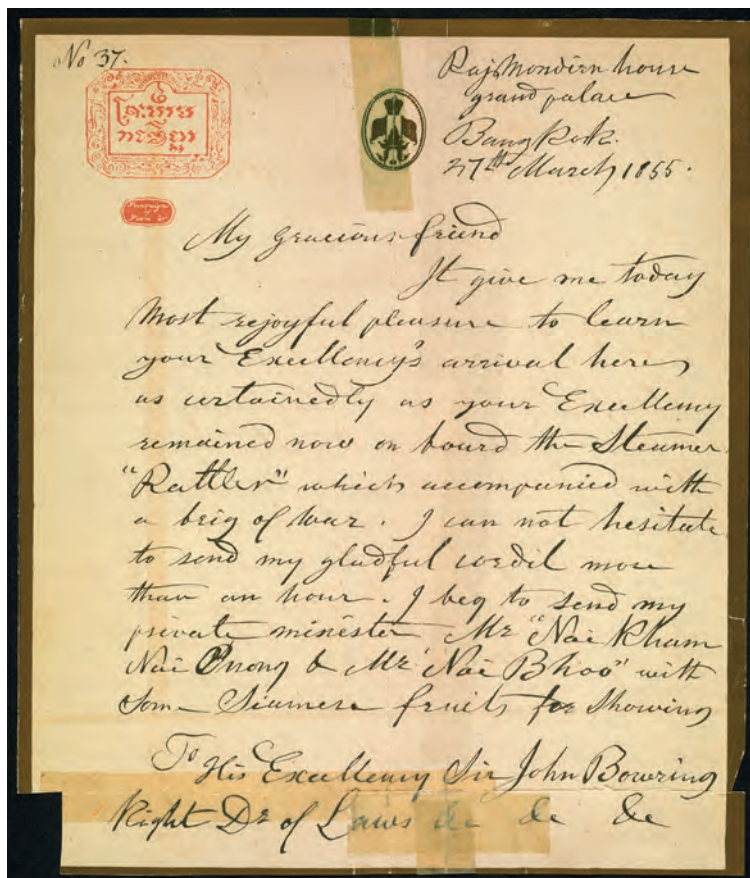 No 37.
Rajmondirn house
grand palace
Bangkok.
27th March 1855.
My gracious friend
It give me today
most rejoyful pleasure to learn
your Excellency's arrival here
as certainedly as your Excellency
remained now on board the Steamer
"Rattler" which accompanied with
a brig of war. I can not hesitate
to send my gladful cordil more
than an hour. I beg to send my
private minister Mr "Nai Kham
Nai Bhoo" with
Some Siamese fruits for showing
To His Excellency Sir John Bowring
Right Dr of Laws &c &c &c